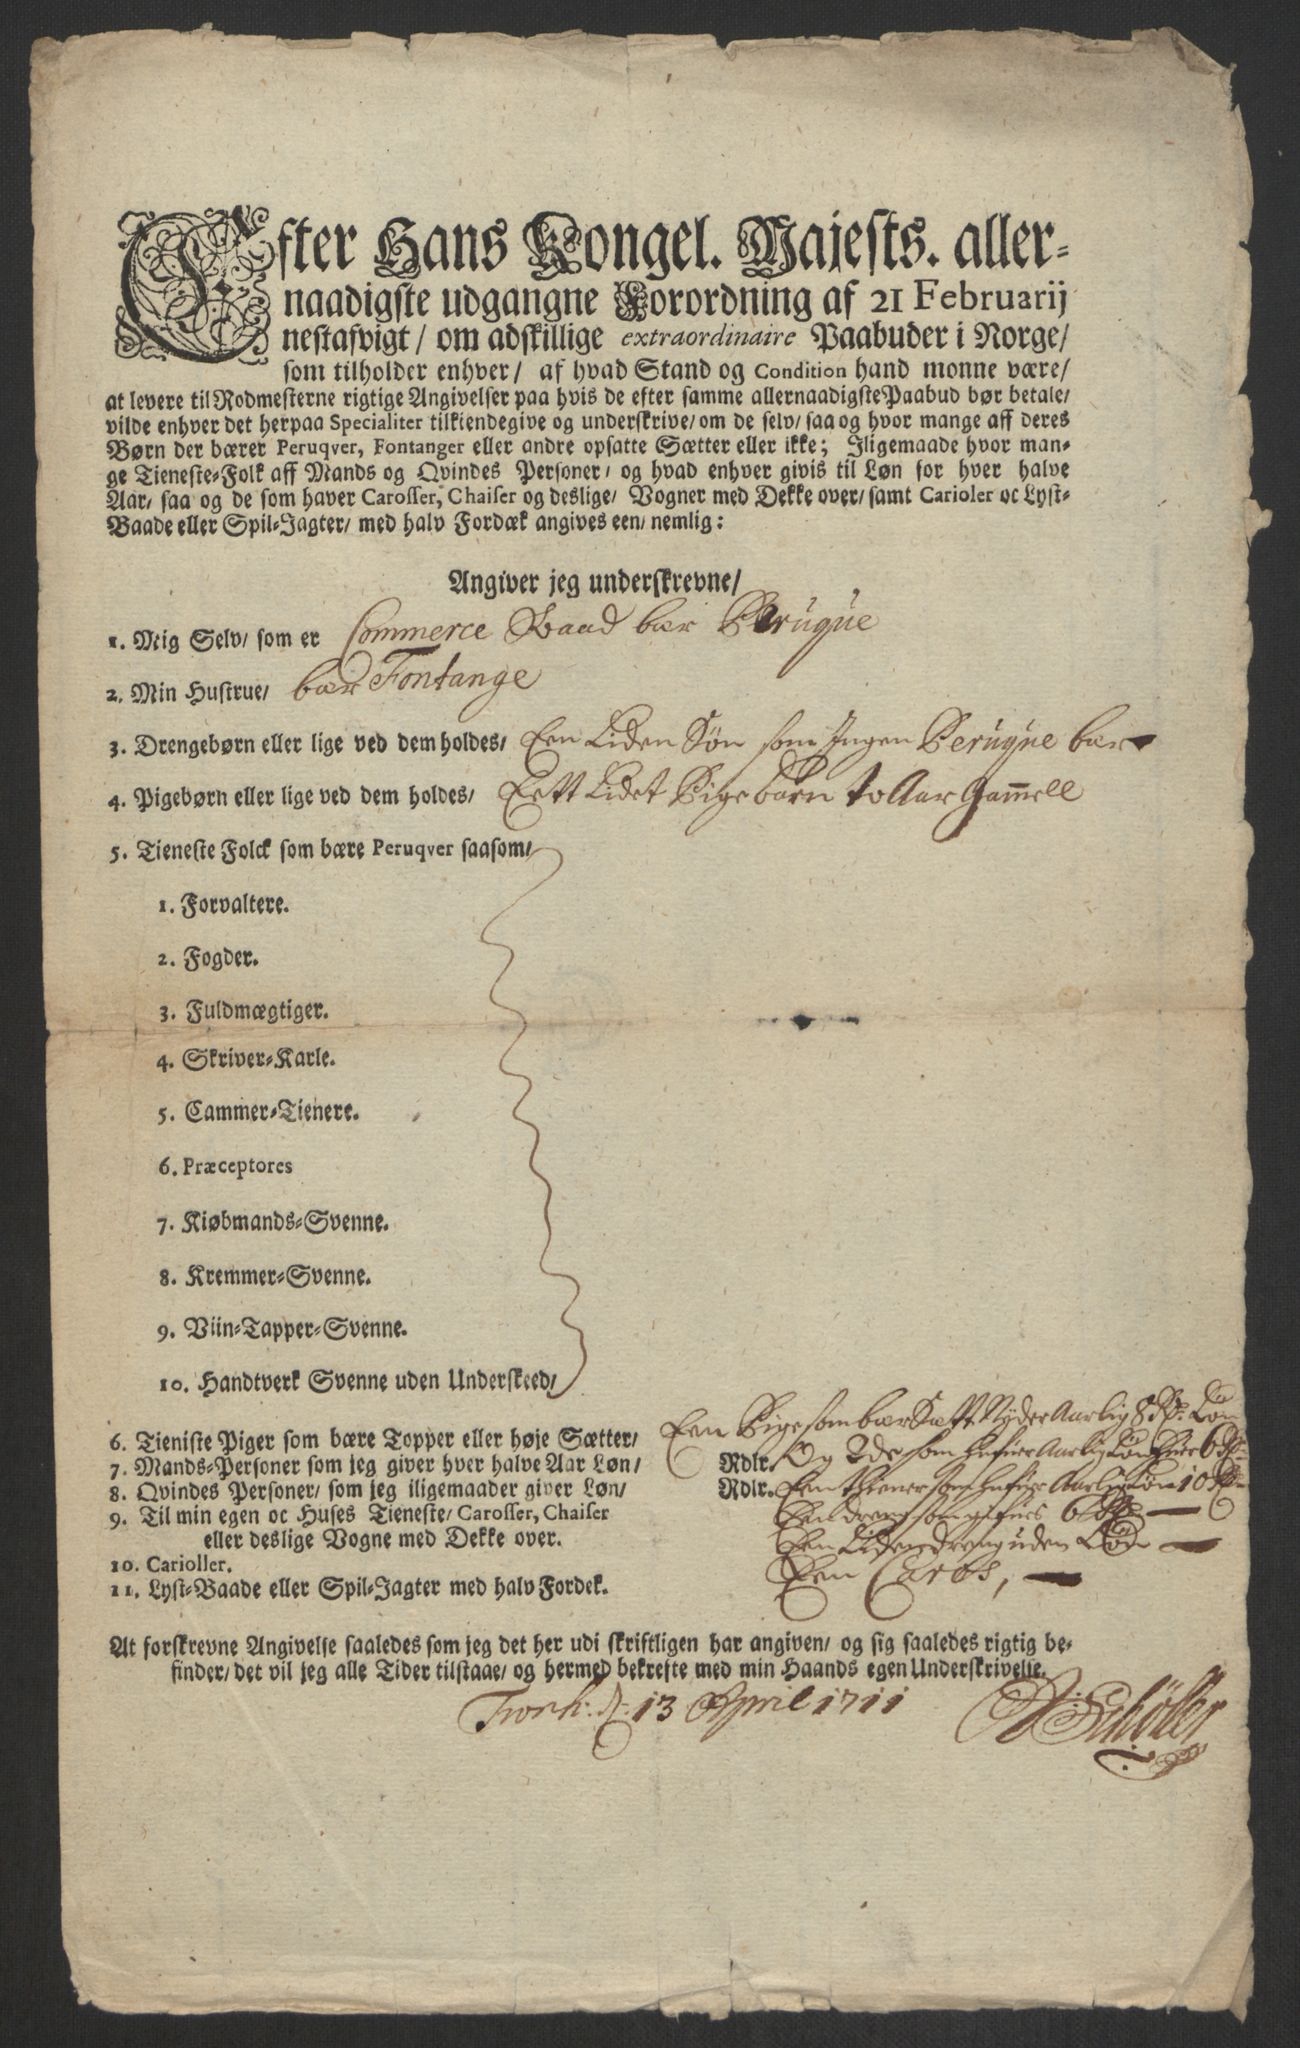 Efter Hans Kongel. Majests. aller-
naadigste udgangne Forordning af 21 Februarij
nestafvigt/ om adskillige extraordinaire Paabuder i Norge/
som tilholder enhver/ af hvad Stand og Condition hand monne være/
at levere til Rodmesterne rigtige Angivelser paa hvis de efter samme allernaadigste Paabud bør betale/
vilde enhver det herpaa Specialiter tilkiendegive og underskrive/ om de selv/ saa og hvor mange aff deres
Børn der bærer Peruqver, Fontanger eller andre opsatte Sætter eller ikke; Iligemaade hvor man-
ge Tieneste-Folk aff Mands og Qvindes Personer/ og hvad enhver givis til Løn for hver halve
Aar/ saa og de som haver Carosser, Chaiser og deslige/ Vogner med Dekke over/ samt Carioler oc Lyst-
Baade eller Spil-Jagter/ med halv Fordæk angives een/ nemlig:
Angiver jeg underskrevne/
1. Mig Selv/ som er Commerce Raad bær Peruque
2. Min Hustrue/ bær Fontange
3. Drengebørn eller lige ved dem holdes/ Een Liden Søn som Ingen Peruque bær
4. Pigebørn eller lige ved dem holdes/ Eett Lidet Pigebarn to Aar Gammell
5. Tieneste Folck som bære Peruqver saasom/
1. Forvaltere.
2. Fogder.
3. Fuldmægtiger.
4. Skriver-Karle.
5. Cammer-Tienere.
6. Præceptores
7. Kiøbmands-Svenne.
8. Kremmer-Svenne.
9. Viin-Tapper-Svenne.
10. Handtverk Svenne uden Underskeed/
Een Pige som bær Sætt Nyder Aarlig 8 Rd. Løn
6. Tieniste Piger som bære Topper eller høje Sætter/
Og 2 de som hafuer Aarlig Løn huer 6 Rd
7. Mands-Personer som jeg giver hver halve Aar Løn/ Rdlr.
8. Qvindes Personer/ som jeg iligemaader giver Løn/ Rdlr. Een thiener som hafuer Aarlig Løn 10 Rd
9. Til min egen oc Huses Tieneste/ Carosser, Chaiser Een dreng som gifues 6 Rd
eller deslige Vogne med Dekke over. Een Liden dreng uden Løn
10. Carioller. Een Caros,
11. Lyst-Baade eller Spil-Jagter med halv Fordek.
At forskrevne Angivelse saaledes som jeg det her udi skriftligen har angiven/ og sig saaledes rigtig be-
finder/ det vil jeg alle Tider tilstaae/ og hermed bekrefte med min Haands egen Underskrivelse.
Tronh: d: 13 April 1711 Schöller